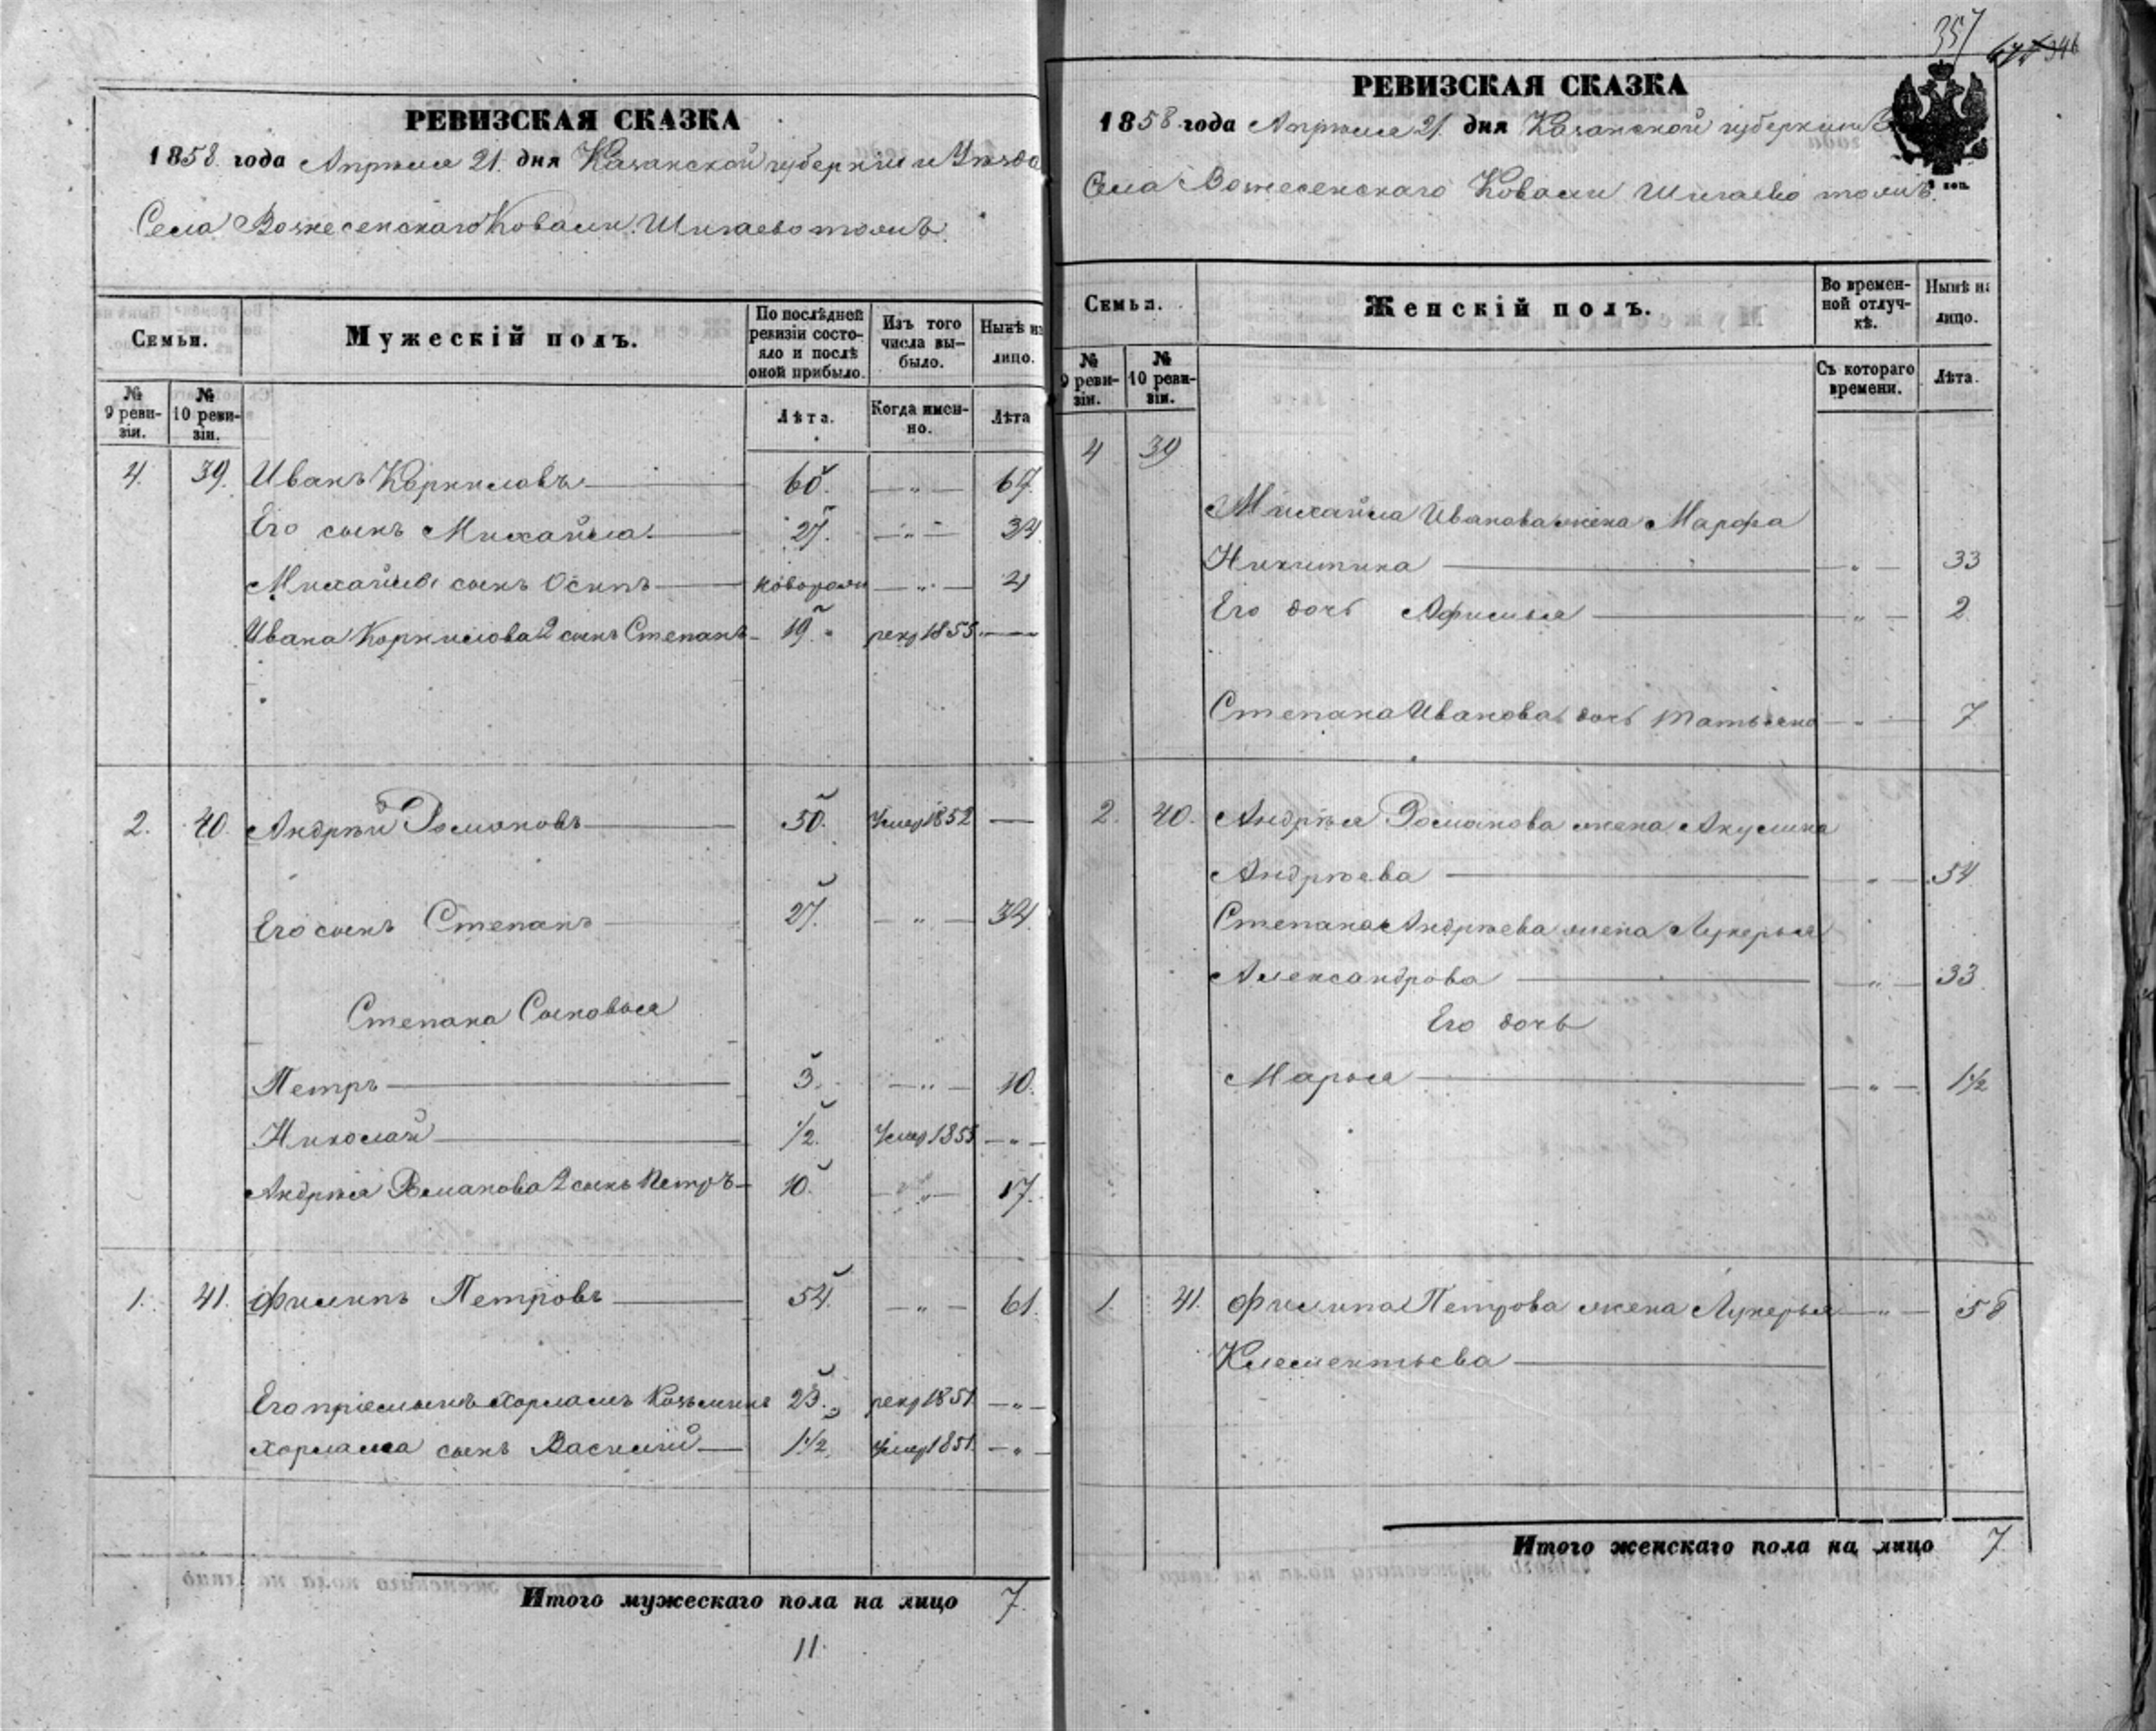 РЕВИЗСКАЯ СКАЗКА
1858 года Апреля 21. дня Казанской губернии и Уѣзда
Села Вознесенскаго Ковали. Шигаево тожъ.
Семьи.
Мужескій полъ.
По послѣдней ревизіи состояло и послѣ оной прибыло.
Изъ того числа выбыло.
Нынѣ на лицо.
№ 9 ревизіи.
№ 10 ревизіи.
Лѣта.
Когда именно.
Лѣта
4. 39. Иванъ Корниловъ 60. — „ — 67.
Его сынъ Михайла. 27. — „ — 34.
Михайлы сынъ Осипъ новорожд — „ — 2
Ивана Корнилова 2 сынъ Степанъ 19. рекр 1855. —
2. 40. Андрѣй Романовъ 50. Умер 1852 —
Его сынъ Степанъ 27. — „ — 34.
Степана Сыновья
Петръ 3. — „ — 10.
Николай 1/2. Умер 1855 — „ —
Андрѣя Романова 2 сынъ Петръ 10. — „ — 17.
1. 41. Филипъ Петровъ 54. — „ — 61.
Его пріемышъ Харламъ Козьминъ 23. рекр 1851 — „ —
Харлама сынъ Василий 1 1/2. Умер 1851. — „ —
Итого мужескаго пола на лицо 7.
11.
357
346
РЕВИЗСКАЯ СКАЗКА
1858 года Апреля 21. дня Казанской губернии
Села Вознесенскаго Ковали Шигаево тожъ.
коп.
Семьи.
Женскій полъ.
Во временной отлучкѣ.
Нынѣ на лицо.
№ 9 ревизіи.
№ 10 ревизіи.
Съ котораго времени.
Лѣта.
4 39
Михайла Иванова жена Марфа
Никитина — „ — 33
Его дочь Афимья — „ — 2
Степана Иванова дочь Татьяна — „ — 7
2. 40. Андрѣя Романова жена Акулина
Андрѣева — „ — 54
Степана Андрѣева жена Лукерья
Александрова — „ — 33
Его дочь
Марья — „ — 1 1/2
1. 41. Филипа Петрова жена Лукерья — „ — 58
Клементьева
Итого женскаго пола на лицо 7